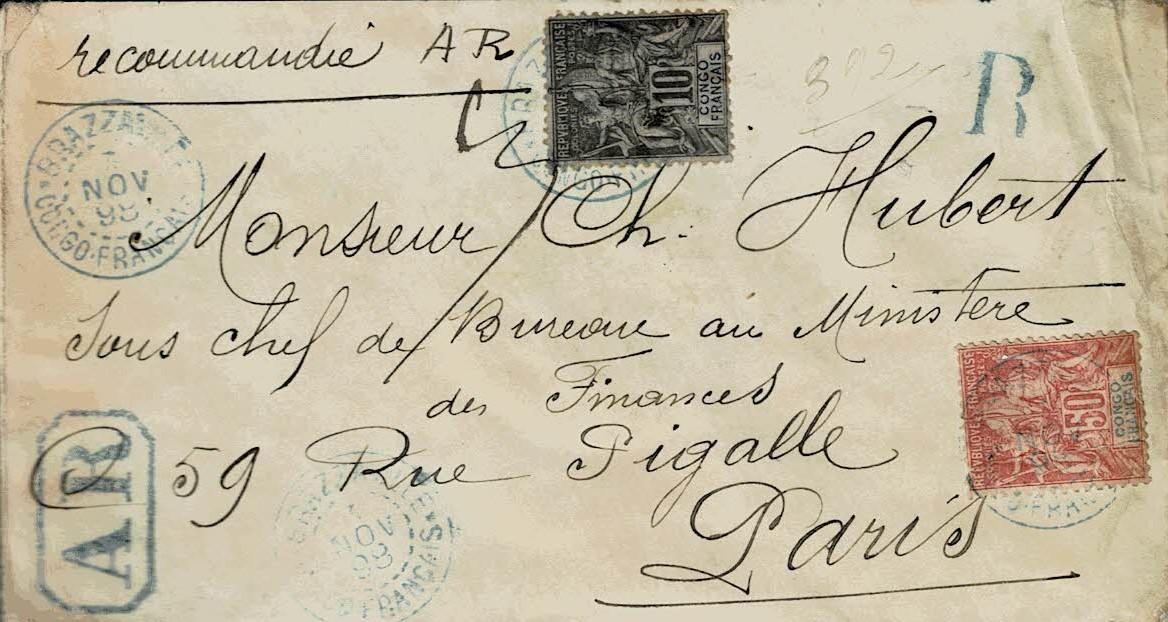 recommandié AR
R
Monsieur Ch. Hubert
Sous chef de Bureau au Ministère
des Finances
59 Rue Pigalle
Paris
AR
BRAZZAVILLE
NOV
98
CONGO-FRANÇAIS
RÉPUBLIQUE FRANÇAISE
10
CONGO
FRANÇAIS
RÉPUBLIQUE FRANÇAISE
50
CONGO
FRANÇAIS
BRAZZAVILLE
NOV
98
CONGO-FRANÇAIS